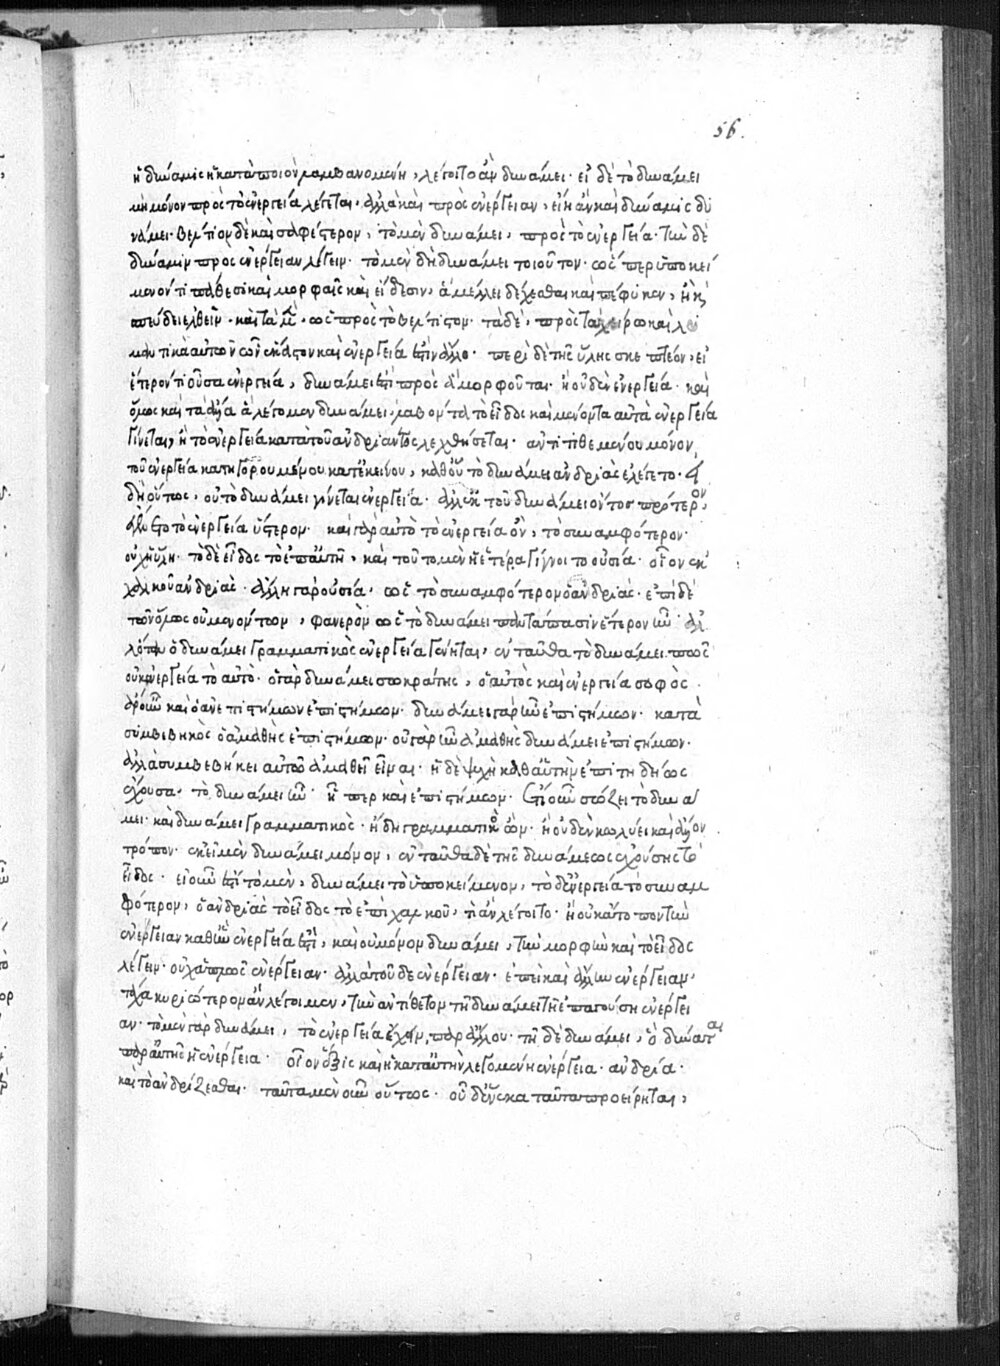 56.
ἡ δύναμις ἡ κατὰ ποιὸν λαμβανομένη, λέγοιτο ἂν δυνάμει· εἰ δὲ τὸ δυνάμει
μὴ μόνον πρὸς τὸ ἐνεργεία λέγεται, ἀλλὰ καὶ πρὸς ἐνέργειαν, εἴη ἂν καὶ δύναμις δυ
νάμει· βέλτιον δὲ καὶ σαφέστερον, τὸ μὲν δυνάμει, πρὸς τὸ ἐνεργεία· τὴν δὲ
δύναμιν πρὸς ἐνέργειαν λέγειν· τὸ μὲν δὴ δυνάμει τοιοῦτον· ὥσπερ ὑποκεί
μενόν τι πάθεσι καὶ μορφαῖς καὶ εἴδεσιν, ἃ μέλλει δέχεσθαι καὶ πέφυκεν, ἢ καὶ
σπεύδει ἐλθεῖν· καὶ τὰ μὲν, ὡς πρὸς τὸ βέλτιστον· τὰ δὲ, πρὸς τὰ χείρω καὶ λυ
μαντικὰ αὐτῶν ὧν ἕκαστον καὶ ἐνεργεία ἐστὶν ἄλλο· περὶ δὲ τῆς ὕλης σκεπτέον, εἰ
ἕτερόν τι οὖσα ἐνεργεία, δυνάμει ἐστὶ πρὸς ἃ μορφοῦται· ἢ οὐδὲν ἐνεργεία· καὶ
ὅλως καὶ τὰ ἄλλα ἃ λέγομεν δυνάμει, λαβόντα τὸ εἶδος καὶ μένοντα αὐτὰ ἐνεργεία
γίνεται, ἢ τὸ ἐνεργεία κατὰ τοῦ ἀνδριάντος λεχθήσεται· ἀντιτιθεμένου μόνον
τοῦ ἐνεργεία κατηγορουμένου κατ' ἐκείνου, καθ' οὗ τὸ δυνάμει ἀνδριὰς ἐλέγετο· εἰ
δὴ οὕτως, οὐ τὸ δυνάμει γίνεται ἐνεργεία· ἀλλ' ἐκ τοῦ δυνάμει ὄντος πρότερον,
ἐγένετο τὸ ἐνεργεία ὕστερον· καὶ γὰρ αὐτὸ τὸ ἐνεργεία ὂν, τὸ συναμφότερον·
οὐχ ἡ ὕλη· τὸ δὲ εἶδος τὸ ἐπ' αὐτῆ, καὶ τοῦτο μὲν εἰ ἑτέρα γίγνοιτο οὐσία· οἷον ἐκ
χαλκοῦ ἀνδριάς· ἄλλη γὰρ οὐσία, ὡς τὸ συναμφότερον ὁ ἀνδριάς· ἐπὶ δὲ
τῶν ὅλως οὐ μενόντων, φανερὸν ὡς τὸ δυνάμει παντάπασιν ἕτερον ἦν· ἀλλ'
ὅταν ὁ δυνάμει γραμματικὸς ἐνεργεία γένηται, ἐνταῦθα τὸ δυνάμει πῶς
οὐκ ἐνεργεία τὸ αὐτό· ὁ γὰρ δυνάμει σωκράτης, ὁ αὐτὸς καὶ ἐνεργεία σοφός·
ἆρ' οὖν καὶ ὁ ἀνεπιστήμων ἐπιστήμων· δυνάμει γὰρ ἦν ἐπιστήμων· κατὰ
συμβεβηκὸς ὁ ἀμαθὴς ἐπιστήμων· οὐ γὰρ ἦν ἀμαθὴς δυνάμει ἐπιστήμων·
ἀλλὰ συμβεβήκει αὐτῶ ἀμαθεῖ εἶναι· ἡ δὲ ψυχὴ καθ' αὑτὴν ἐπιτηδείως
ἔχουσα· τὸ δυνάμει ἦν ᾗπερ καὶ ἐπιστήμων· ἔτι οὖν σώζει τὸ δυνά
μει· καὶ δυνάμει γραμματικὸς· ἤδη γραμματικὸς ὤν· ἢ οὐδὲν κωλύει καὶ ἄλλον
τρόπον· ἐκεῖ μὲν δυνάμει μόνον, ἐνταῦθα δὲ τῆς δυνάμεως ἐχούσης τὸ
εἶδος· εἰ οὖν ἐστὶ τὸ μὲν, δυνάμει τὸ ὑποκείμενον, τὸ δ' ἐνεργεία τὸ συναμ
φότερον, ὁ ἀνδριὰς τὸ εἶδος τὸ ἐπὶ χαλκοῦ, τί ἂν λέγοιτο· ἢ οὐκ ἄτοπον τὴν
ἐνέργειαν καθ' ἣν ἐνεργεία ἐστὶ, καὶ οὐ μόνον δυνάμει, τὴν μορφὴν καὶ τὸ εἶδος
λέγειν· οὐχ ἁπλῶς ἐνέργειαν· ἀλλὰ τοῦδε ἐνέργειαν· ἐπεὶ καὶ ἄλλην ἐνέργειαν,
τάχα κυριώτερον ἂν λέγοιμεν, τὴν ἀντίθετον τῆ δυνάμει τῆ ἐπαγούση ἐνέργει
αν· τὸ μὲν γὰρ δυνάμει, τὸ ἐνεργεία ἔχειν, παρ' ἄλλου· τῆ δὲ δυνάμει, ὃ δύναται
παρ' αὐτῆς ἡ ἐνέργεια· οἷον ἕξις καὶ ἡ κατ' αὐτὴν λεγομένη ἐνέργεια· ἀνδρία·
καὶ τὸ ἀνδρίζεσθαι. ταῦτα μὲν οὖν οὕτως· οὗ δ' ἕνεκα ταῦτα προείρηται,